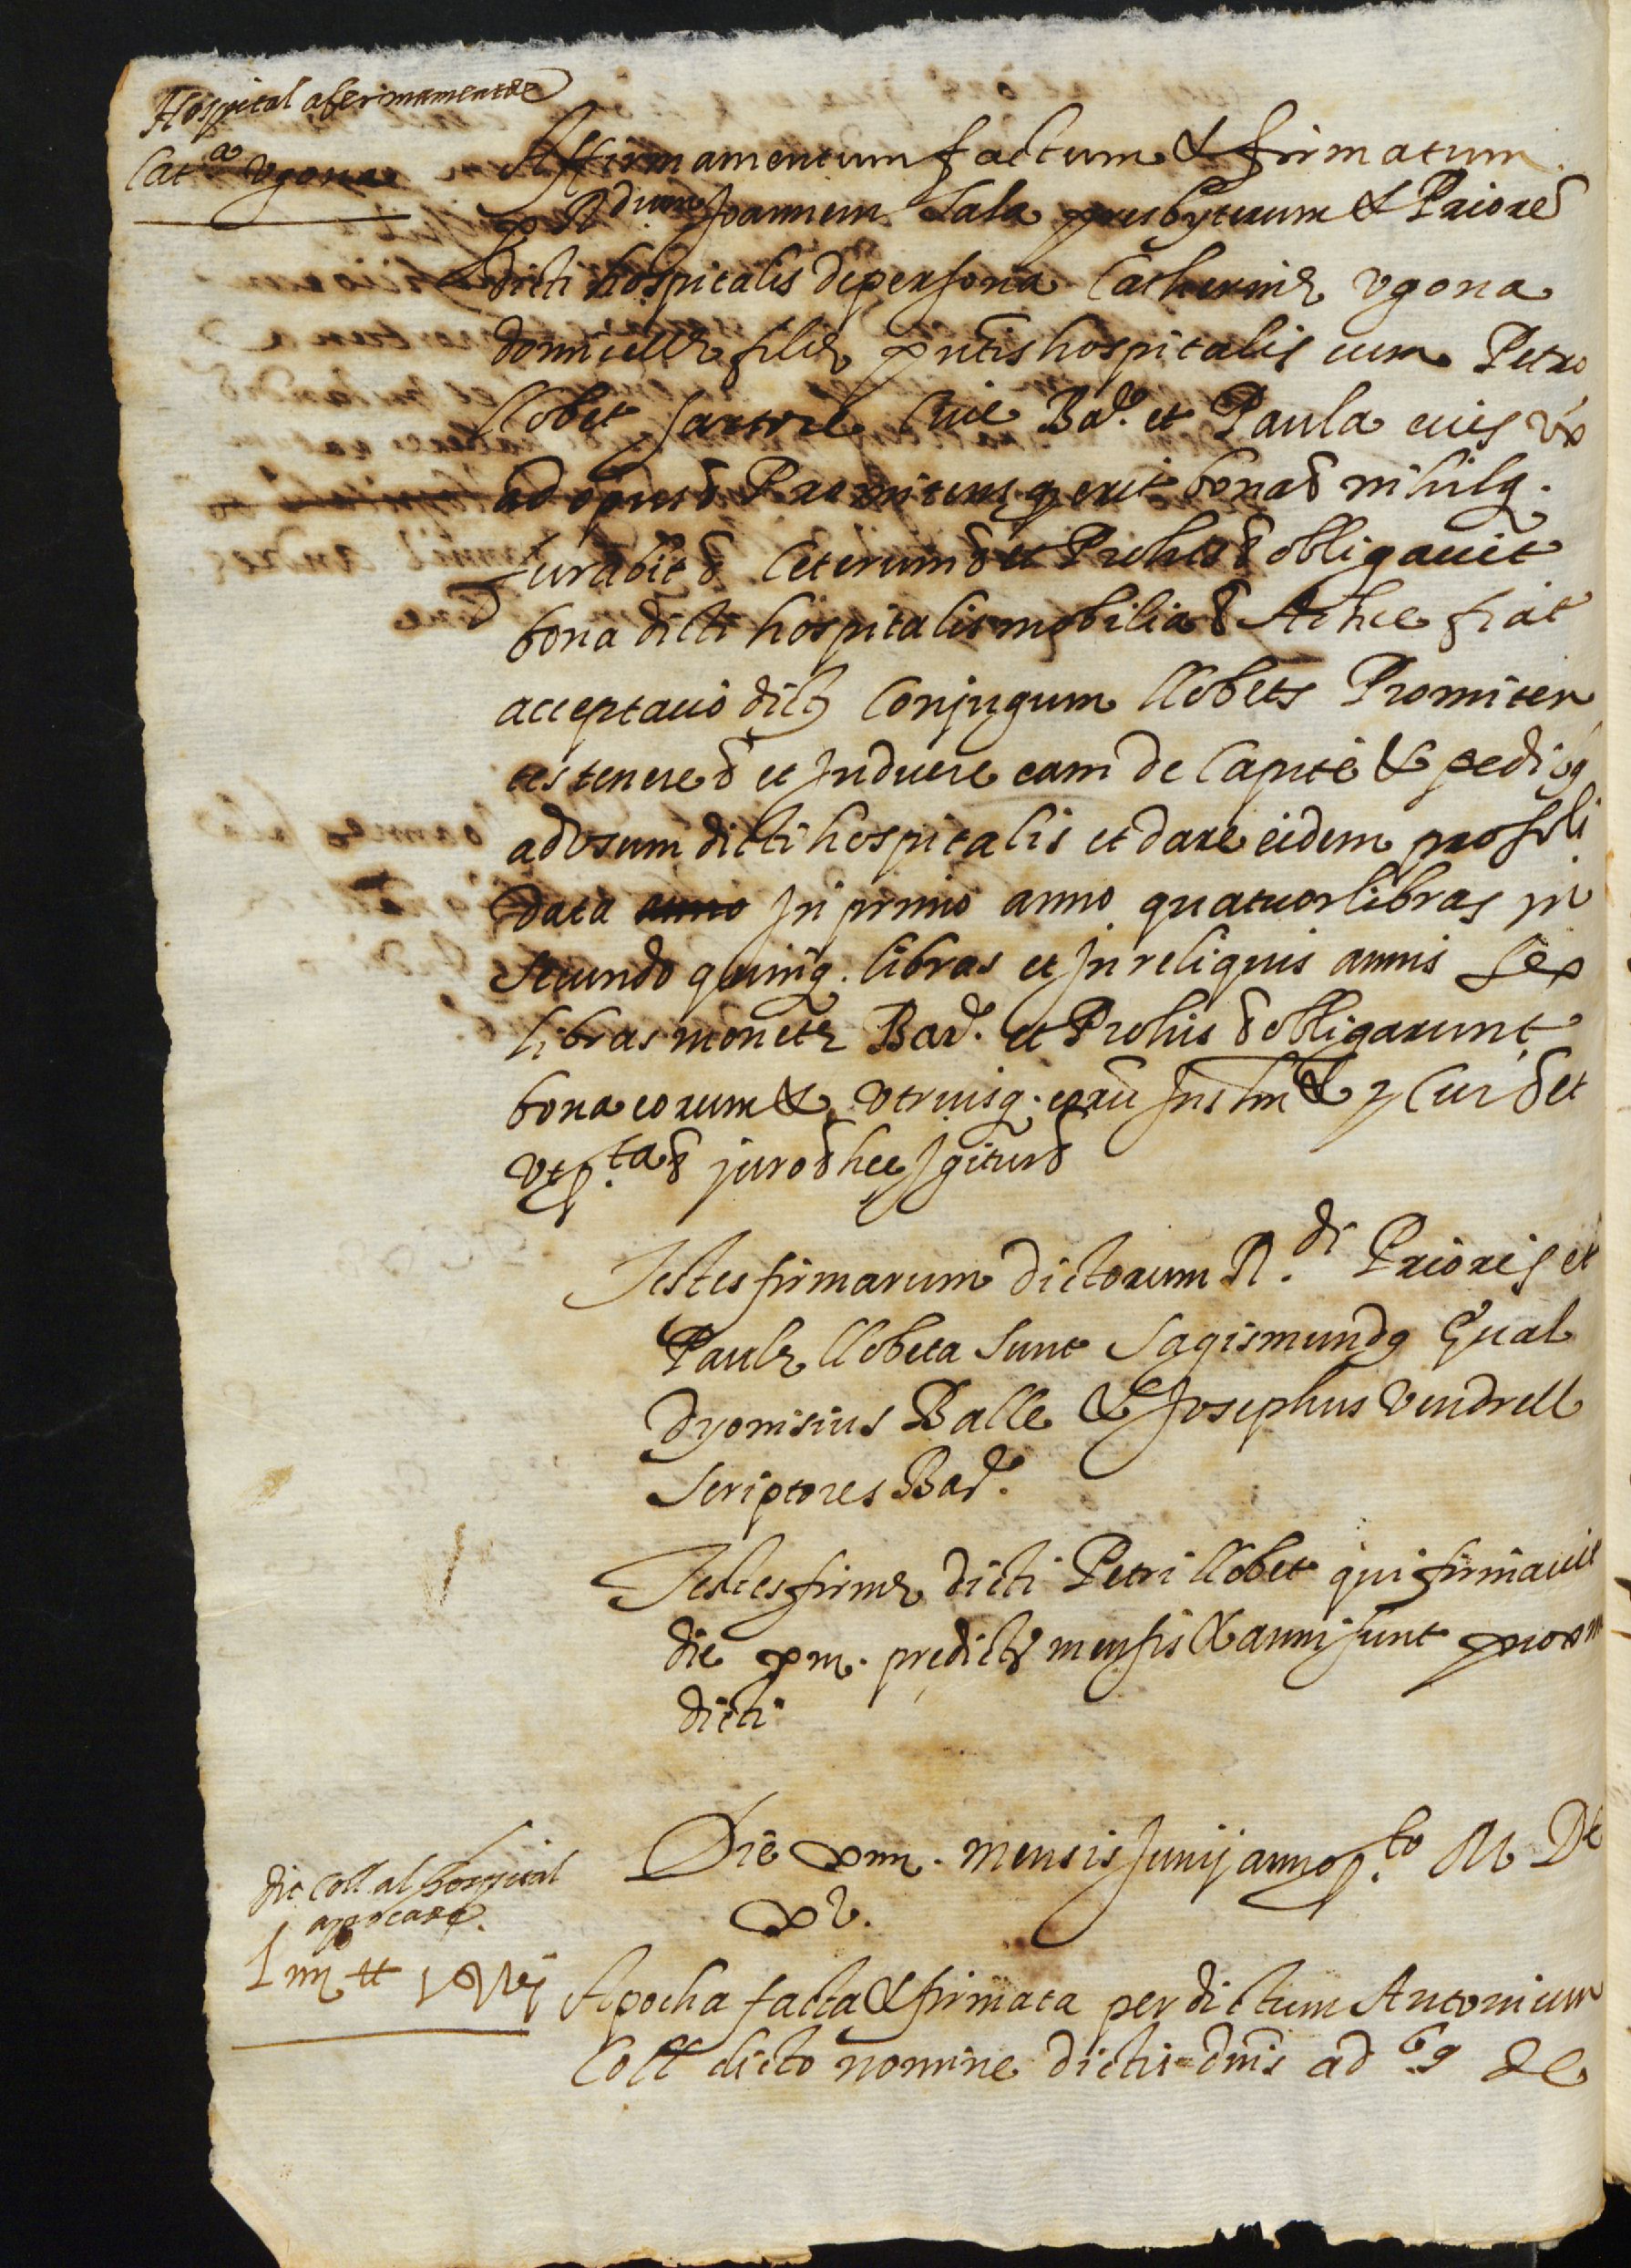 Hospital afermament de
Cat.a Vgona
Affirmamentum factum & firmatum
p R.dum Joannem Sala presbyterum & Priorē
dicti hospitalis de persona Catherinę Vgona
domicellę filię pñtis hospitalis cum Petro
llobet sartore Cive Bar. et Paula eius vx
ad opus & Promitens q erit bona & nihilq.
Jurabit & Ceterum & et Prohis & obligavit
bona dicti hospitalis mobilia & Ad hec fiat
acceptatio dictę Conjugum llobets Promiten
tes tenere & et Induere eam de Capite & pedibq
ad vsum dicti hospitalis et dare eidem pro soli
data anno In primo anno quatuor libras In
secundo quinq. libras et In reliquis annis sex
libras monetę Bar. et Prohis & obligarunt
bona eorum & vtriusq. eorū Insm &
vt p.ta & juro & hec Igitur &
Testes firmarum dictorum R.di Prioris et
Paulę llobeta sunt Sagismundq Gual
Dyonisius Balle & Josephus Vendrell
scriptores Bar.
Testes firmę dicti Petri llobet qui firmavit
die predictę mensis & anni sunt proxm
dicti
Die xiiij. mensis Junij anno p.to M Dc
xv.
dit Coll al hospital
apoca
Apocha facta & firmata per dictum Antonium
Coll dicto nomine dictis dñis ad de